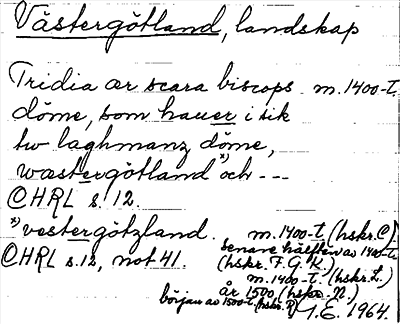 Västergötland, landskap
Tridia ær scara biscops m. 1400-t.
döme, som hauer i sik
tw laghmanz döme,
wæstergötland *) och ---
CHRL s. 12.
*) vestergötzland. m. 1400-t. (hskr. C).
senare hälften av 1400-t.
CHRL s. 12, not 41. (hskr. F. G. K.)
m. 1400-t. (hskr. L.)
år 1500 (hskr. N.)
början av 1500-t. (hskr. P.)
J. E. 1964.